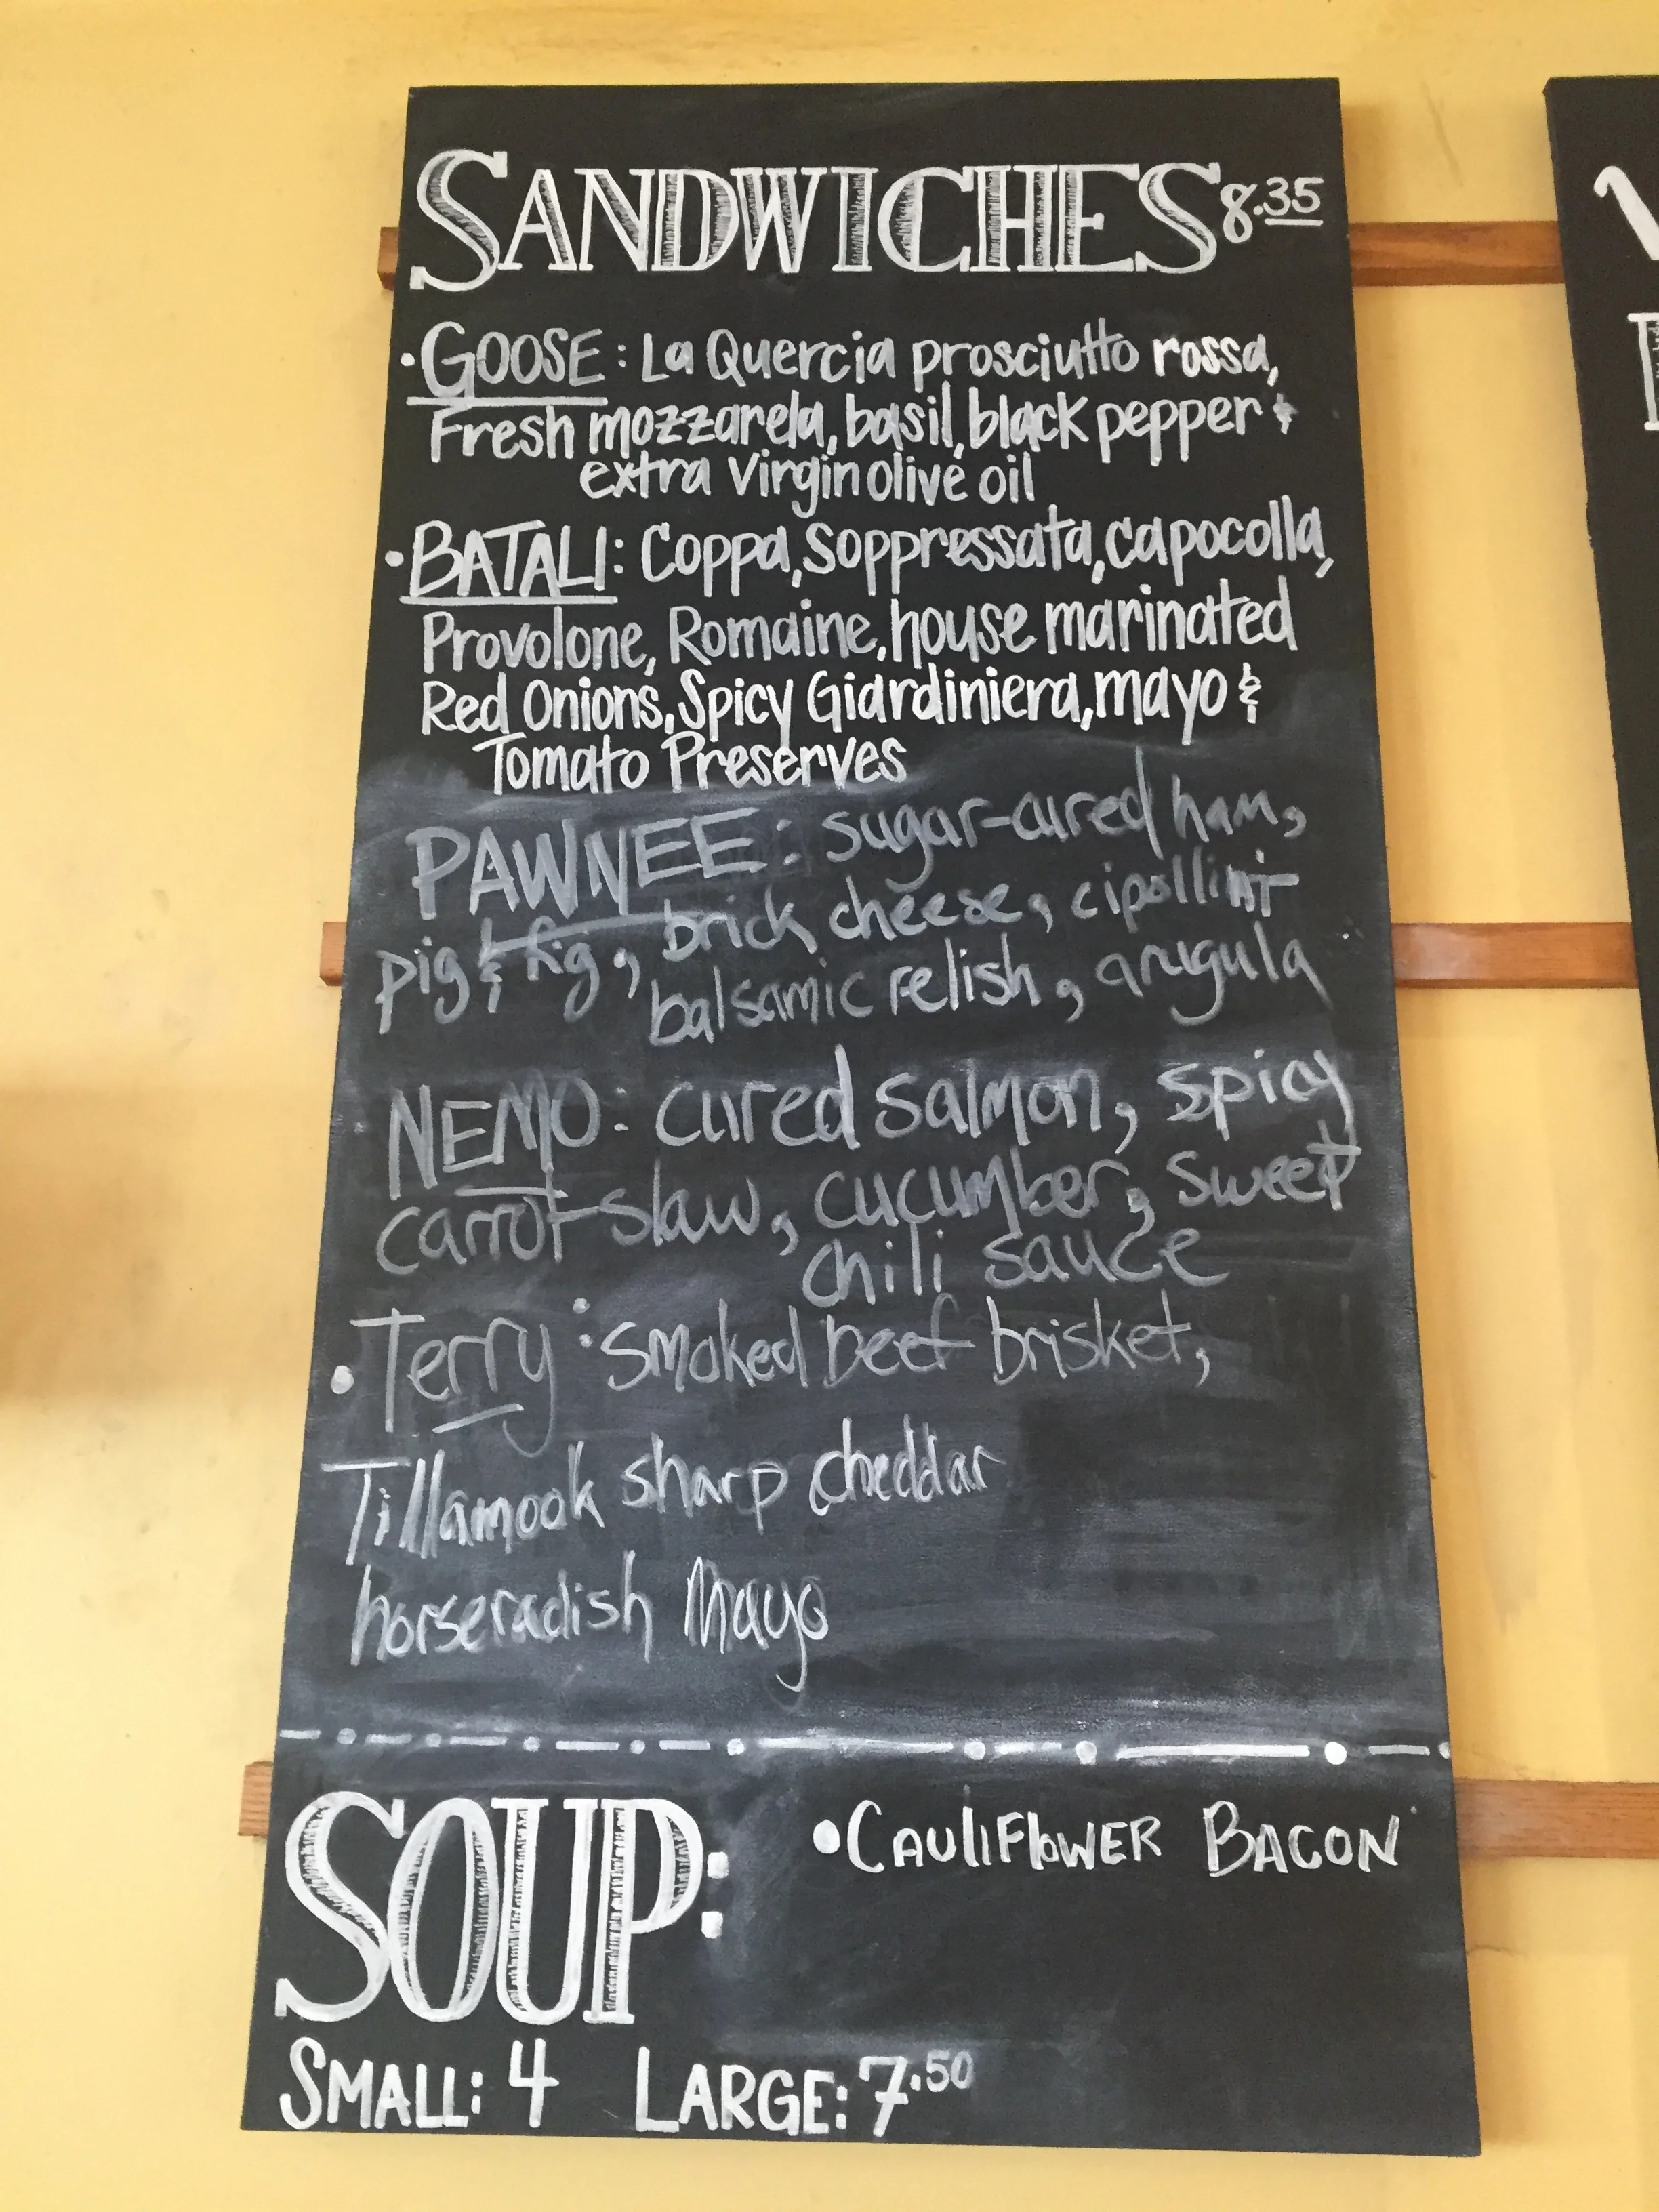 SANDWICHES 8.35
• GOOSE: La Quercia prosciutto rossa,
Fresh mozzarela, basil, black pepper &
extra virgin olive oil
• BATALI: Coppa, Soppressata, capocolla,
Provolone, Romaine, house marinated
Red Onions, Spicy Giardiniera, mayo &
Tomato Preserves
PAWNEE: sugar-cured ham,
pig & fig, brick cheese, cipollini
balsamic relish, arugula
NEMO: cured salmon, spicy
carrot slaw, cucumber, sweet
chili sauce
• Terry: smoked beef brisket,
Tillamook sharp cheddar
horseradish Mayo
SOUP: • CAULIFlOWER BACON
SMALL: 4 LARGE: 7.50